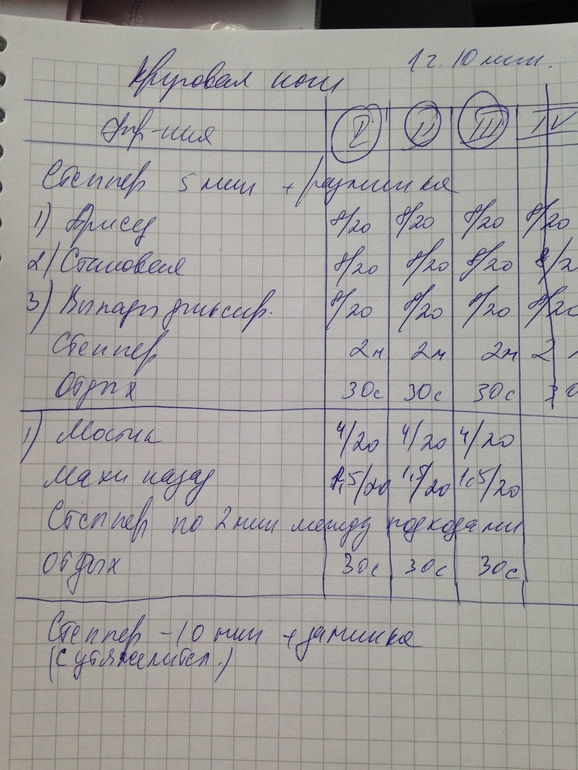 Круговая ноги 1 ч. 10 мин.
Упр-ния I II III IV
Степпер 5 мин + разминка
1) Присед 8/20 8/20 8/20 8/20
2) Становая 8/20 8/20 8/20 8/2
3) Выпады фиксир. 8/20 8/20 8/20 8/20
Степпер 2м 2м 2м 2
Отдых 30с 30с 30с 30
1) Мостик 4/20 4/20 4/20
Махи назад 1,5/20 1,5/20 1,5/20
Степпер по 2 мин между подходами
Отдых 30с 30с 30с
Степпер - 10 мин + заминка
(с утяжелител.)